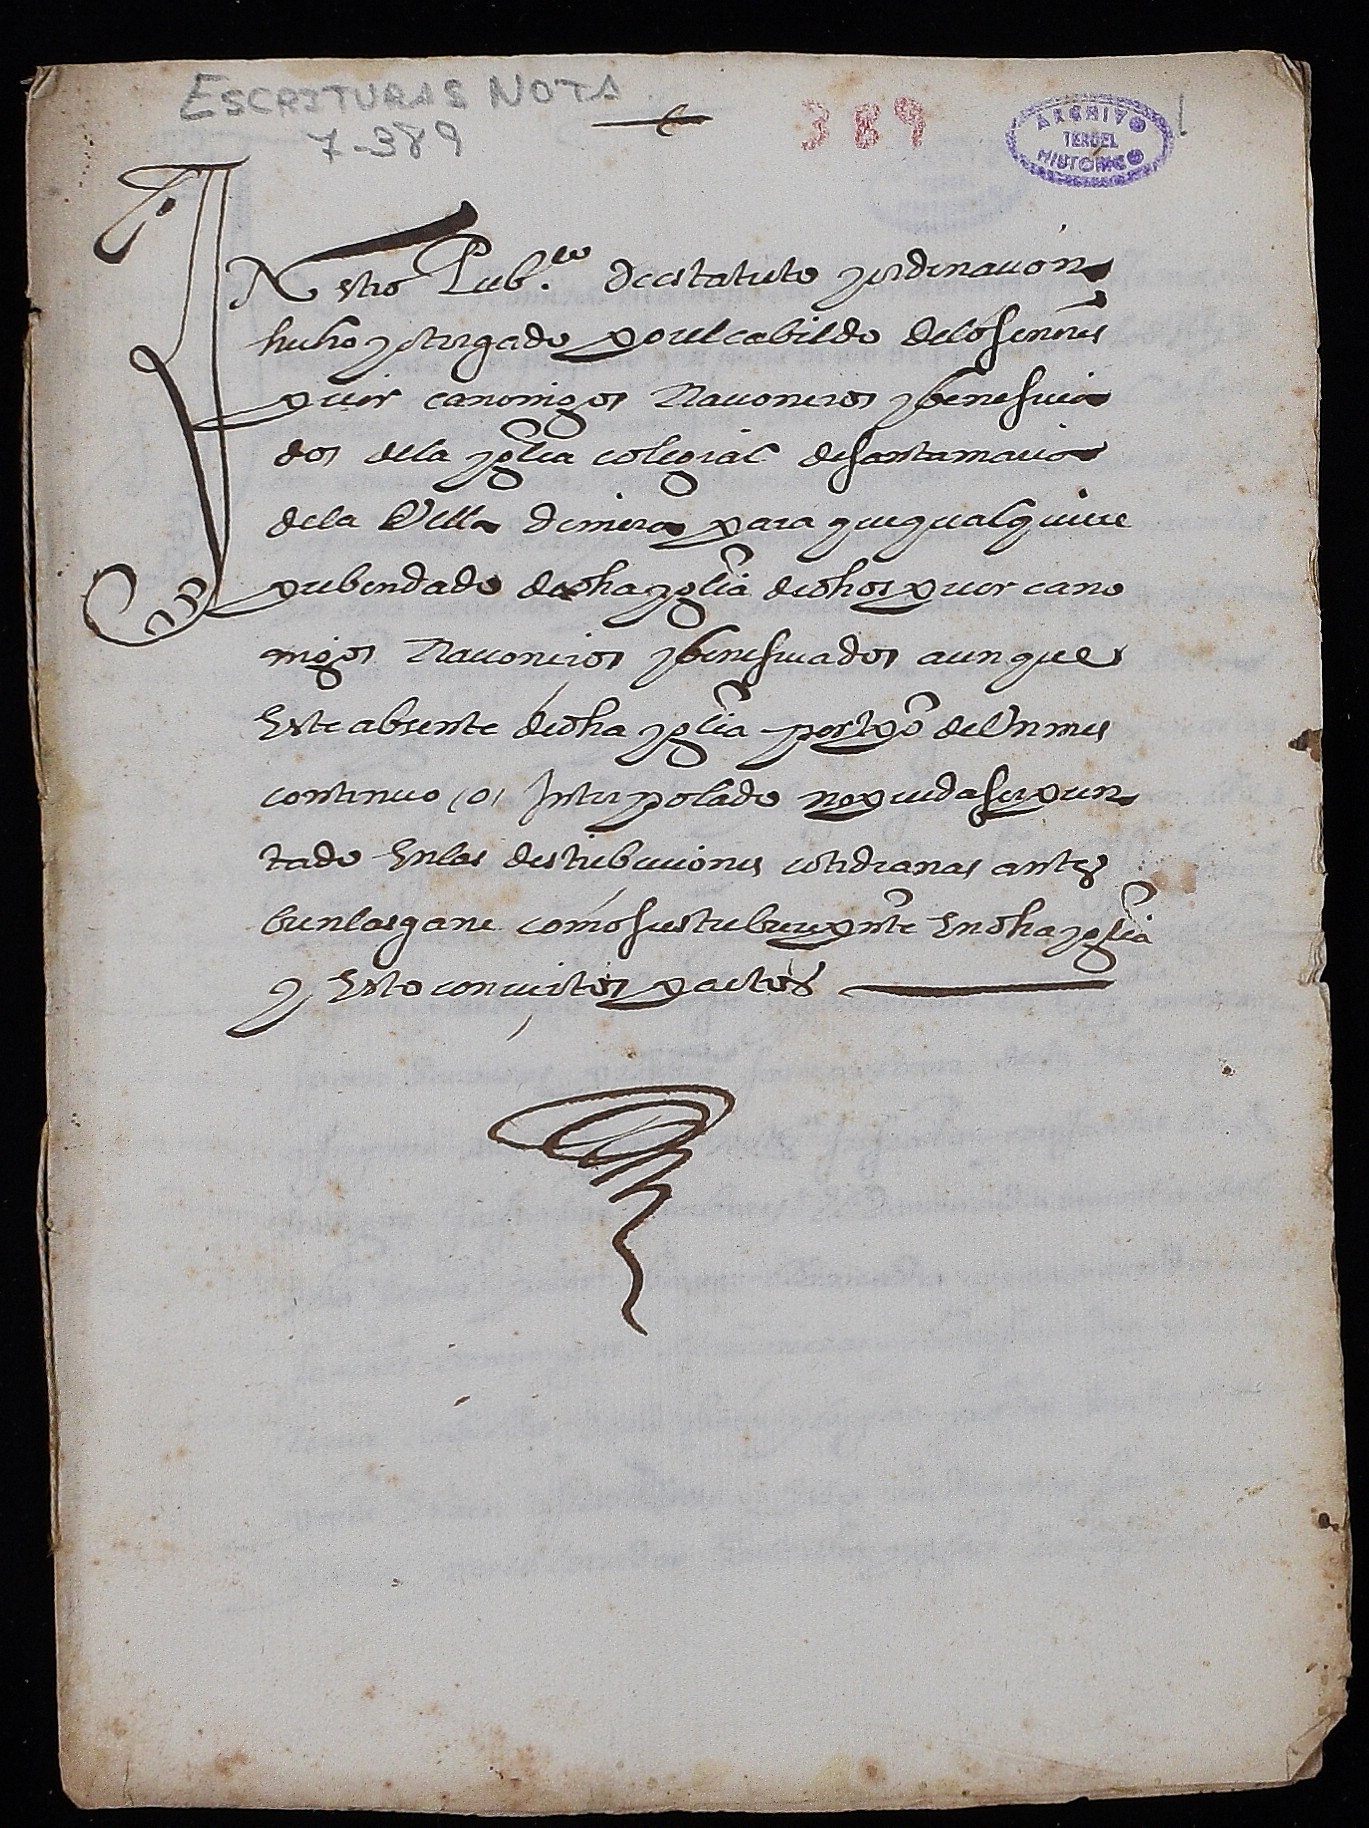 ESCRITURAS NOTA
7-389
389
1
ARCHIVO
TERUEL
HISTORICO
INstro Pub.co de estatuto y ordinacion
hecho y otorgado por el cabildo de los señores
prior canonigos Racioneros y benefficia
dos de la yglia colegial de santa maria
de la Villa de mora para que qualquiere
prebendado de dha yglia de dhos prior cano
nigos Racioneros y beneficiados aunque
Este absente de dha yglia por tpo de Un mes
continuo (o) Interpolado no pueda ser pun
tado En las destribuciones cotidianas antes
bien las gane como si estubiere pnte En dha yglia
y Esto con ciertos pactos